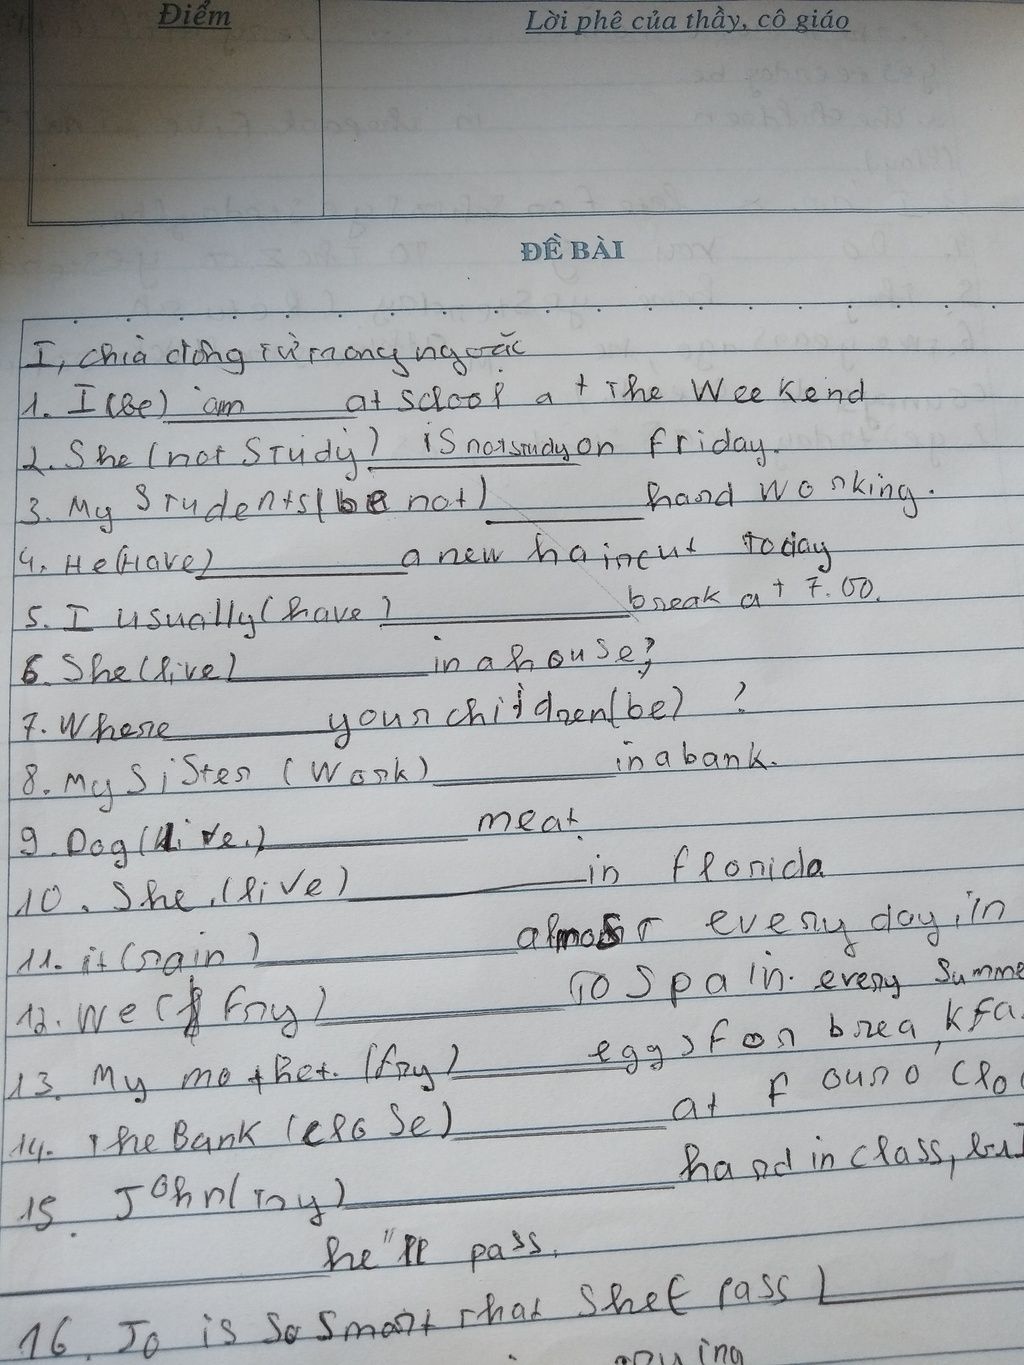 Điểm
Lời phê của thầy, cô giáo
ĐỀ BÀI
I, chia động từ trong ngoặc
1. I (Be) am at scloof at the Weekend
2. She (not Study) is not study on friday.
3. My Students (be not) hard working.
4. He (Have) a new haircut today
5. I usually (have) break at 7.00.
6. She (live) in a house?
7. Where your children (be) ?
8. My Sister (Work) in a bank.
9. Dog (Live.) meat
10. She, (live) in florida
11. it (rain) almost every day, in
12. We ( fry) to Spain. every Summe
13. My mother. (fry) eggs for breakfa
14. the Bank (close) at f ouro'clo
15. John (try) hard in class, but
he'll pass.
16. Jo is So Smart that She pass